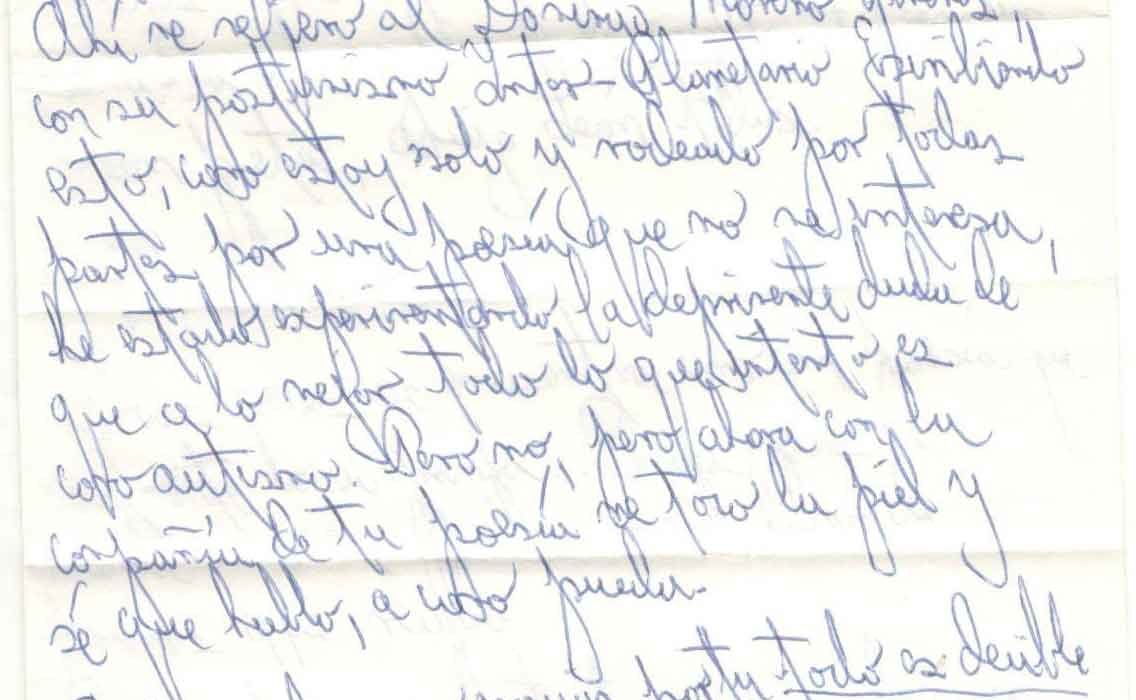 Ahí se refieren al Domingo Moreno Jimenes,
con su postumismo Inter-Planetario Escribiendo
esto, como estoy solo y rodeado por todas
partes por una poesía que no me interesa,
he estado experimentando la deprimente duda de
que a lo mejor todo lo que intento es
como autismo. Pero no, pero ahora con la
compañía de tu poesía me toco la piel y
sé que hablo, a como pueda.
todo es decible